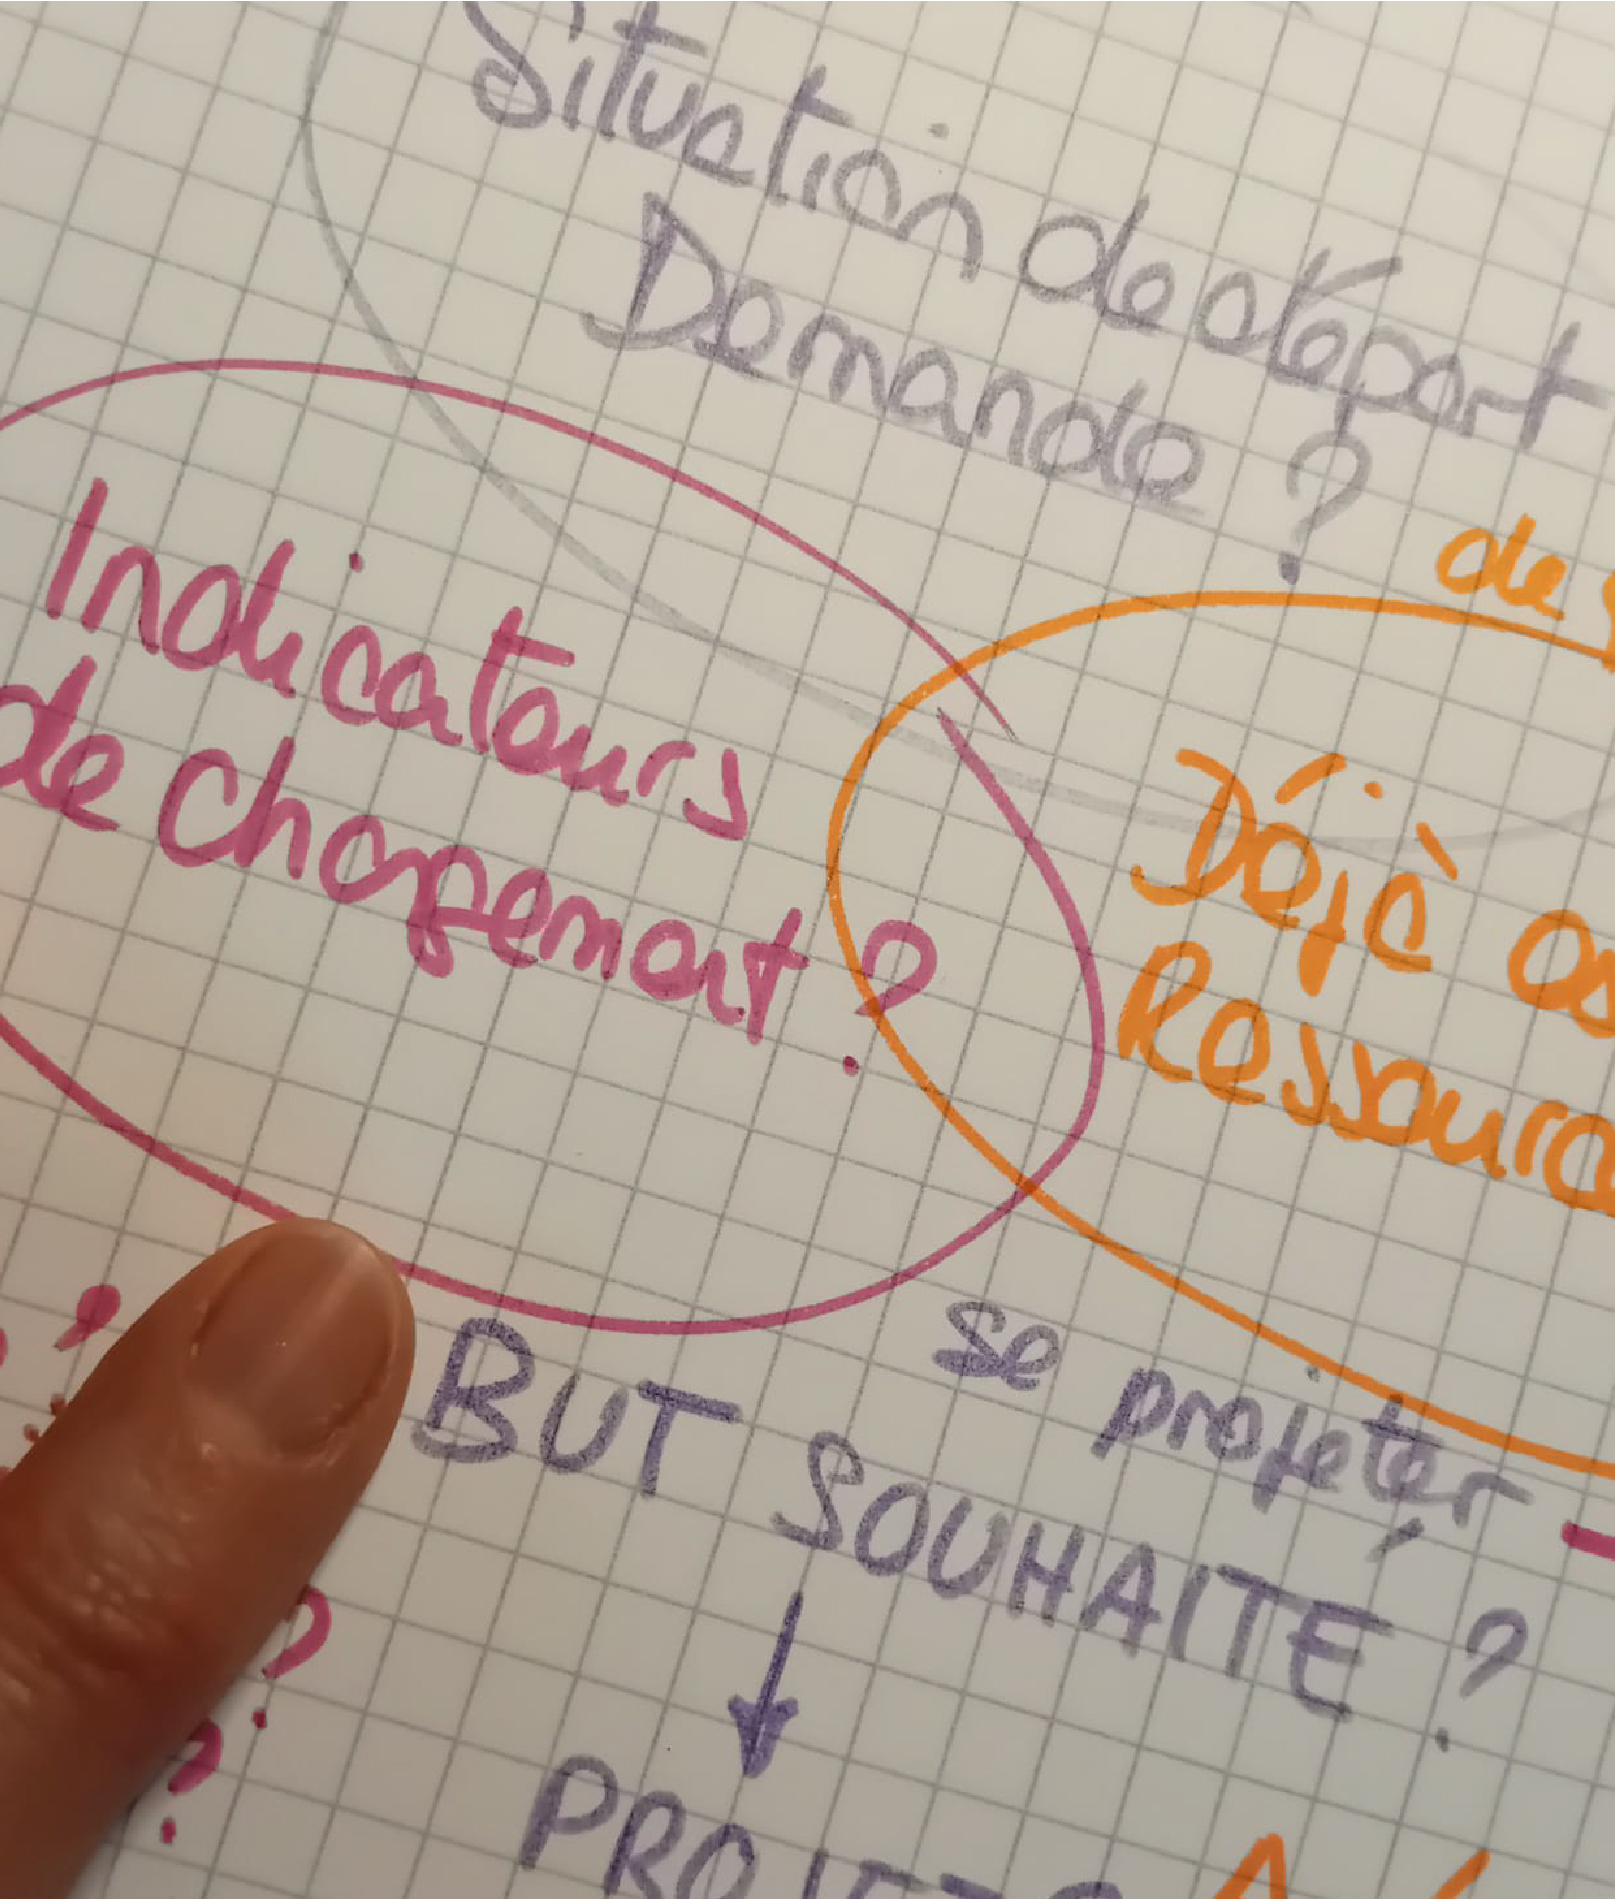 Situation de départ
Demande ?
de
Indicateurs
de changement ?
Déjà
Ressourc
se projeter
BUT SOUHAITÉ ?